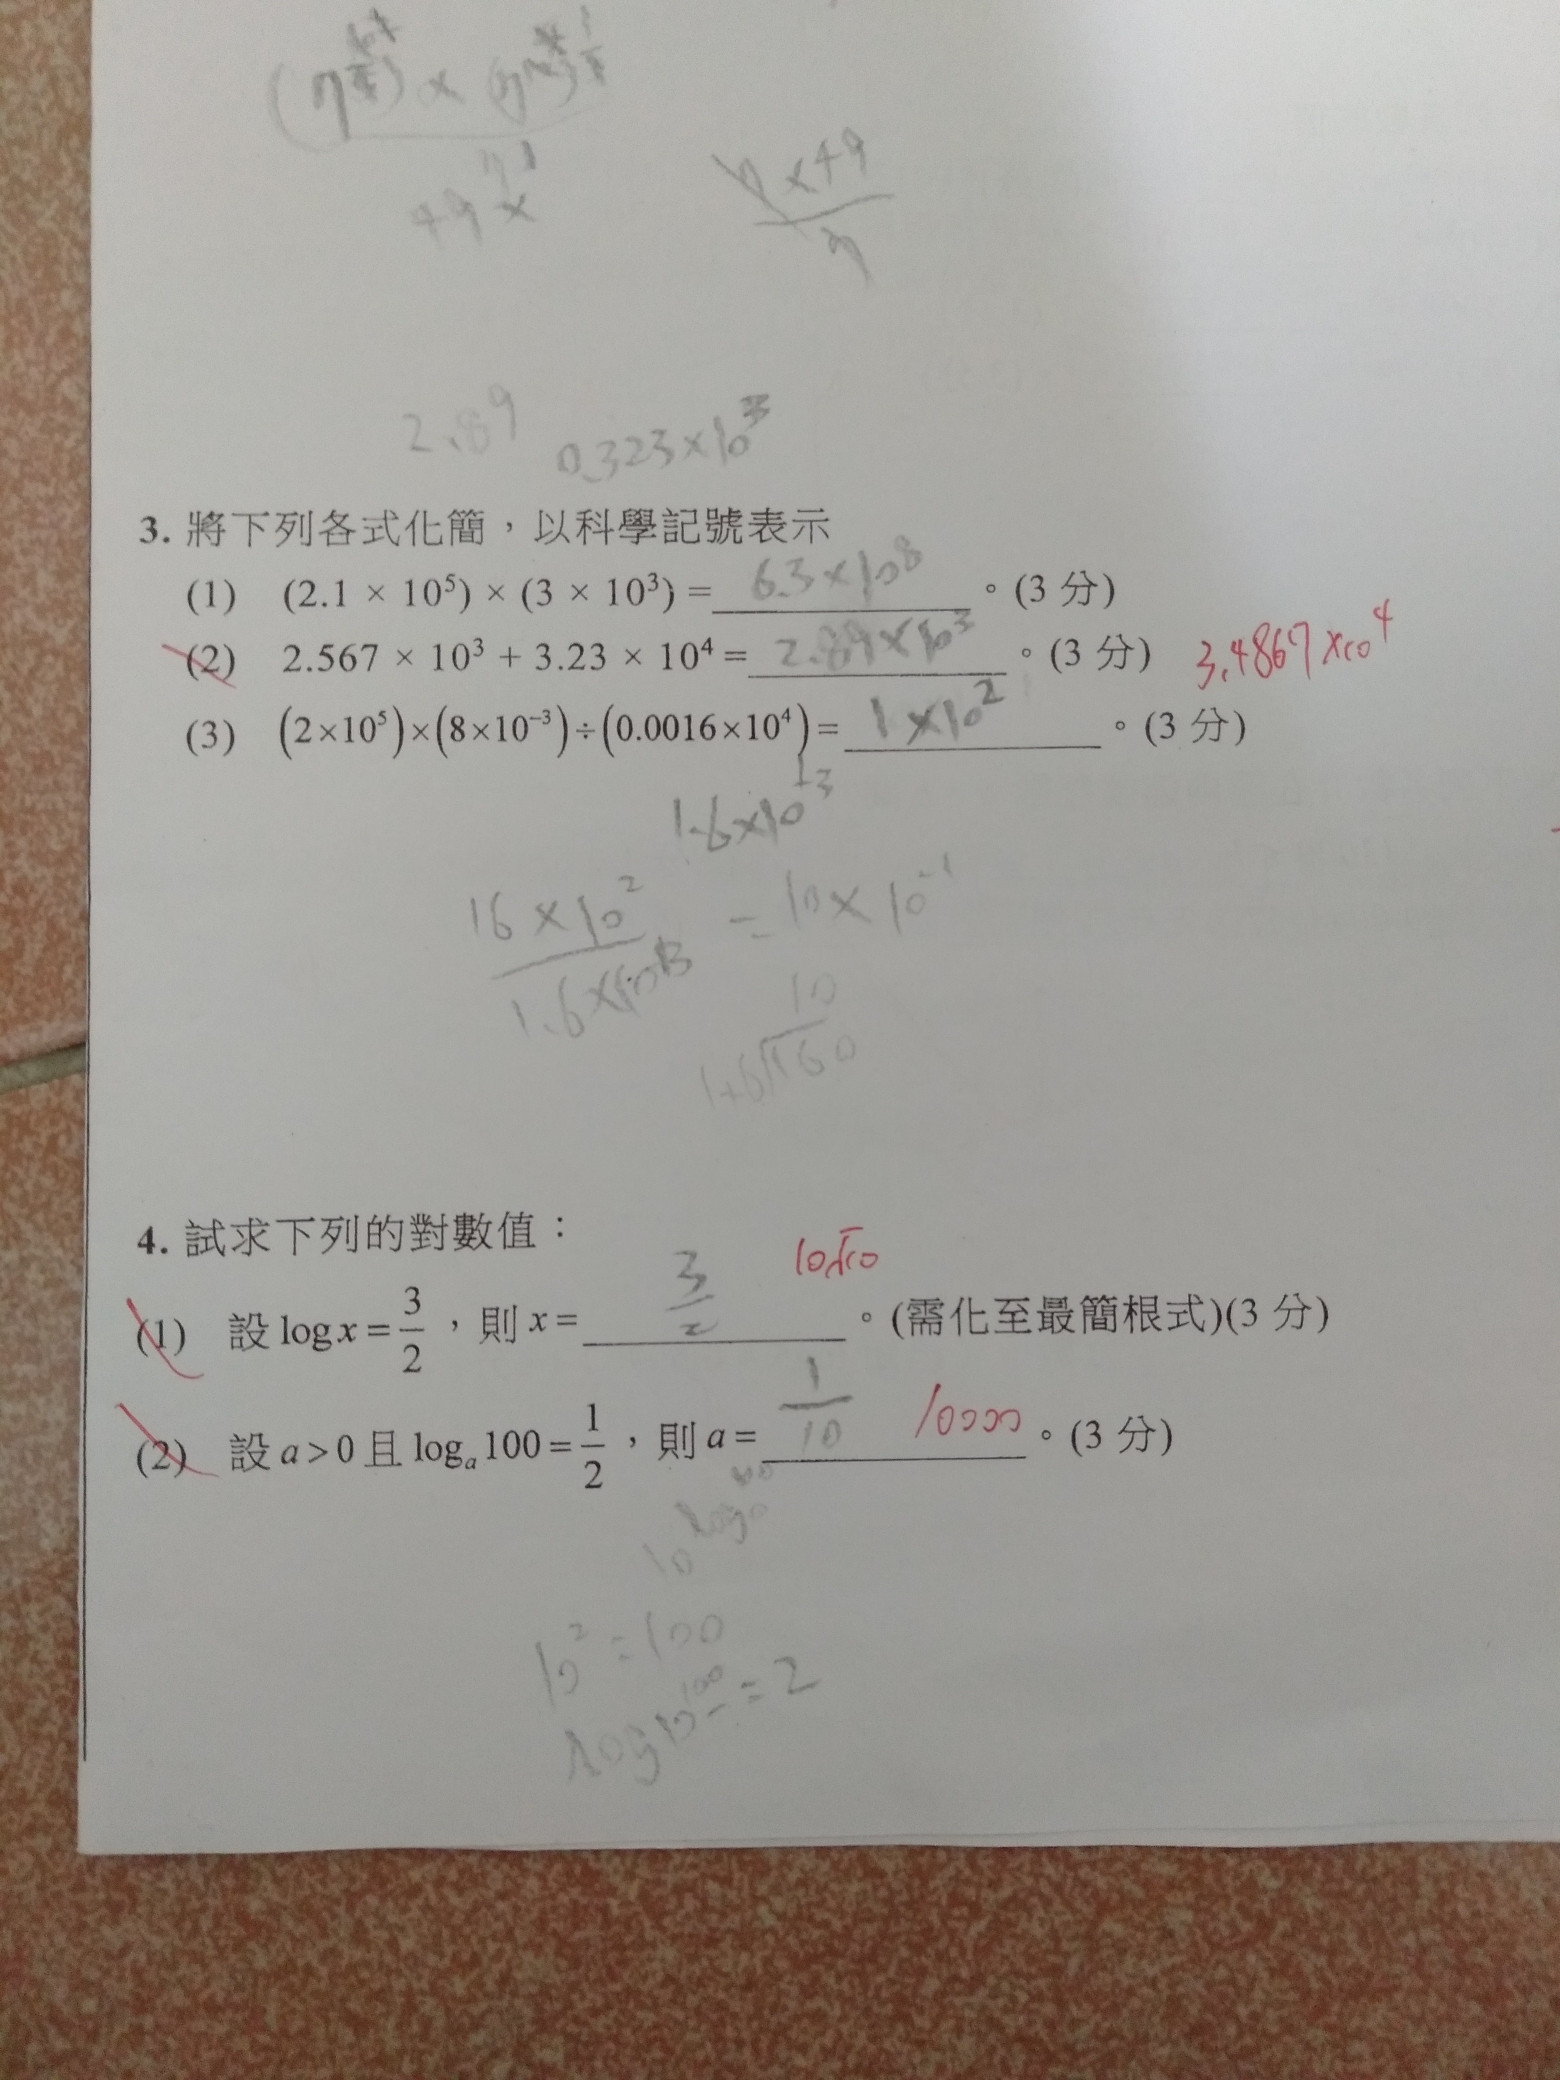 49x
x+9
2.89
0.323×10³
3. 將下列各式化簡，以科學記號表示
(1) (2.1 × 10⁵) × (3 × 10³) = 6.3×10⁸ 。(3 分)
(2) 2.567 × 10³ + 3.23 × 10⁴ = 2.89×10³ 。(3 分) 3.4867×10⁴
(3) (2×10⁵)×(8×10⁻³)÷(0.0016×10⁴)= 1×10² 。(3 分)
1.6×10
16×10² = 10×10⁻¹
1.6×10
10
160
4. 試求下列的對數值：
(1) 設 log x = 3/2 ，則 x = 3/2 10√10 。(需化至最簡根式)(3 分)
(2) 設 a > 0 且 logₐ 100 = 1/2 ，則 a = 1/10 10000 。(3 分)
10² = 100
log10 100 = 2